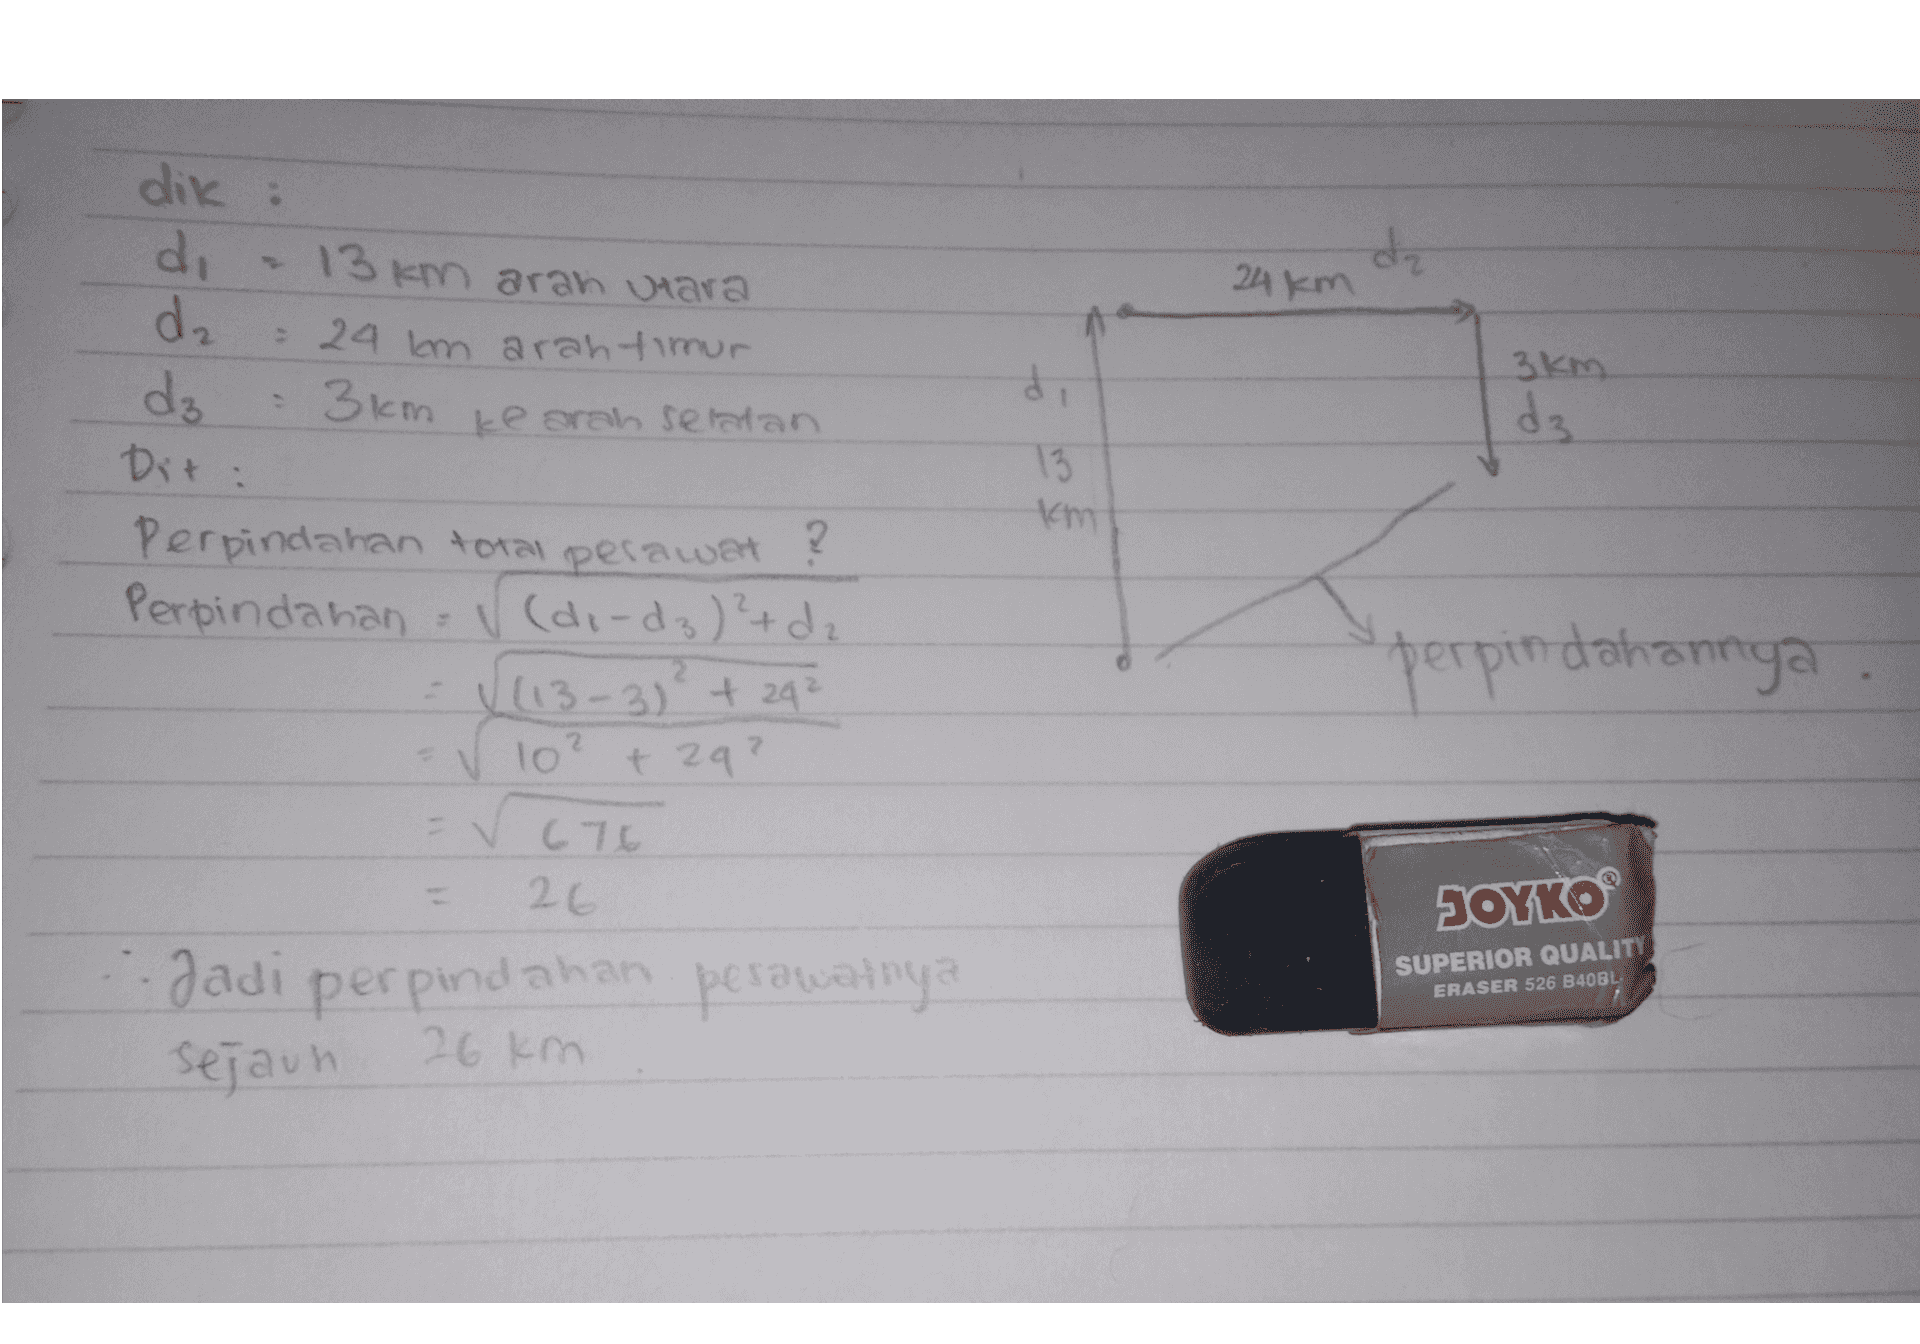 dik :
d₁ = 13 km arah utara
d₂ = 24 km arah timur
d₃ = 3 km ke arah selatan
Dit :
Perpindahan total pesawat ?
Perpindahan = √(d₁-d₃)²+d₂
= √(13-3)² + 24²
= √10² + 24²
= √676
= 26
∴ Jadi perpindahan pesawatnya
sejauh 26 km.
24 km d₂
d₁
13
km
3 km
d₃
perpindahannya.
JOYKO®
SUPERIOR QUALITY
ERASER 526 B40BL